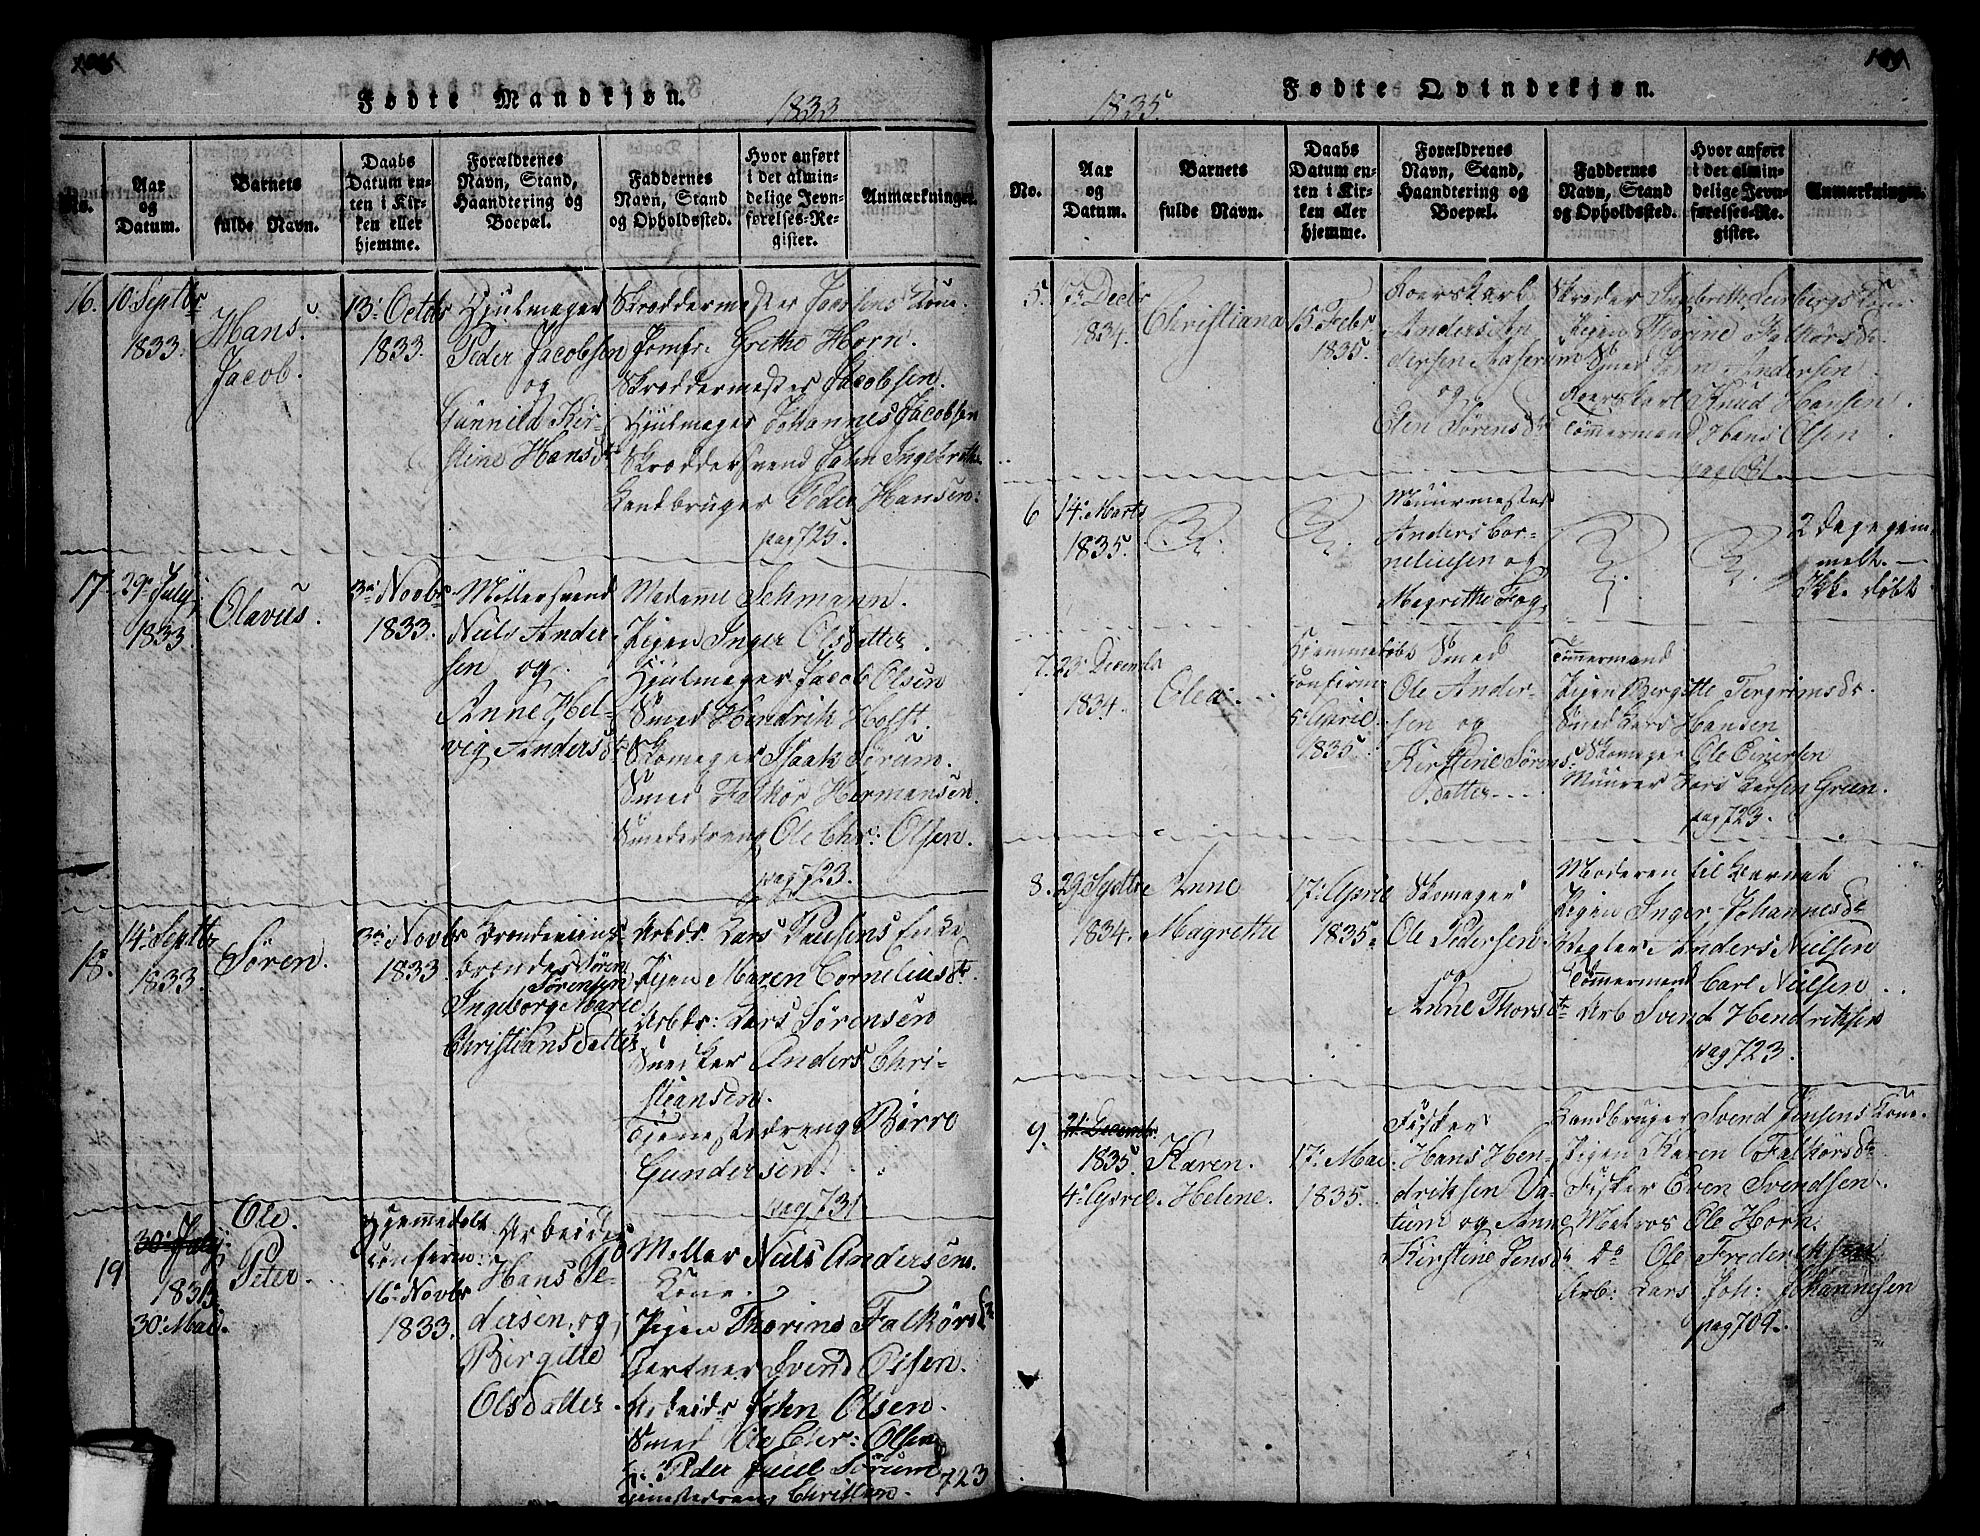 Fødte Mandkjøn.
1833
No.
Aar
og
Datum.
Barnets
fulde Navn.
Daabs
Datum en-
ten i Kir-
ken eller
hjemme.
Forældrenes
Navn, Stand,
Haandtering og
Boepæl.
Faddernes
Navn, Stand
og Opholdssted.
Hvor anført
i det almin-
delige Jevn-
førelses-Re-
gister.
Anmærkninger
16.
10 Septbr
1833.
Hans
Jacob.
13: Octbr
1833.
Hjulmager
Peder Jacobsen
og
Gunnild Kir-
stine Hansdtr
Skræddermester Jacobsens Kone.
Jomfr: Grethe Horn.
Skræddermester Jacobsen.
Hjulmager Johannes Jacobsen
Skræddersvend John Ingebrethsen
Landbruger Peder Hansen:
pag 725.
17
29 July
1833
Olavus.
3 Novbr
1833.
Møllersvend
Niels Ander-
sen og
Anne Hel-
vig Andersdtr
Madame Schmann.
Pigen Inger Olsdatter.
Hjulmager Jacob Olsen
Smed Hendrik Holst.
Skomager Isaak Sørum.
Smed Falkør Hermansen.
Smededreng Ole Chr: Olsen.
pag 723.
18.
14 Septbr
1833.
Søren.
3 Novbr
1833.
Søren
Sørensen
Ingeborg Marie
Christiansdatter
Arbdr. Lars Paulsens Enke
Pigen Maren Corneliusdtr.
Arbdr: Lars Sørensen
Snedker Anders Chri-
stiansen.
Tjenestedreng Birro
Gundersen.
pag 731
19
30 July
1833.
30 Mai.
Ole
Peter
Hjemmedøbt
confirm:
16 Novbr
1833.
Arbeider
Hans Pe-
dersen og
Birgitte
Olsdatter.
Møller Niels Andersens
Kone.
Pigen Thorine Falkørsdtr
Gartner Svend Olsen.
Arbeidr John Olsen.
Smed Ole Chr: Olsen
Peder Juul Sørum
Tjenestedreng Christian.
723
Fødte Qvindekjøn.
1835.
No.
Aar
og
Datum.
Barnets
fulde Navn.
Daabs
Datum en-
ten i Kir-
ken eller
hjemme.
Forældrenes
Navn, Stand,
Haandtering og
Boepæl.
Faddernes
Navn, Stand
og Opholdssted.
Hvor anført
i det almin-
delige Jevn-
førelses-Re-
gister.
Anmærkninger.
5.
7 Decbr
1834.
Christiana
15. Febr
1835.
Koerskarl
Anders An
dersen Aaserum
og
Elen Sørensdtr
Skræder Ingebreth Leinbergs Kone.
Pigen Thorine Falkørsdtr.
Smed John Andersen.
Koerskarl Knud Hansen.
Tømmermand Hans Olsen.
pag 681.
6
14. Marts
1835.
Muurmester
Anders Cor-
neliusen og
Magrethe Fog
2 Dage gam-
melt.
Ikke døbt
7.
23 Decembr
1834.
Olea.
Hjemmedøbt
Confirm
5 April
1835
Smed
Ole Ander-
sen og
Kirstine Sørens-
datter
Tømmermand
Pigen Bergitte Tergrimsdtr.
Smed Lars Hansen
Skomager Ole Einersen
Muurer Lars Larsen Green.
pag 723.
8.
29 Septbr
1834.
Anne
Magrethe
17 April
1835.
Skomager
Ole Pedersen.
og
Anne Thorsdtr
Moderen til Barnet
Pigen Inger Johannesdtr
Anders Nielsen
Tømmermand Carl Nielsen
Arb Svend Hendriksen
pag 723.
9.
21 Decembr.
1835
4 April.
Karen.
Helene.
17 Mai
1835.
Fisker
Hans Hen-
driksen Va-
tum og Anne
Kirstine Jensdtr
Landbruger Svend Jensens Kone.
Pigen Karen Falkørsdtr
Fisker Even Svendsen.
Matros Ole Horn.
Do Ole Frederiksen
Arb: Lars Joh: Johannesen
pag 709.